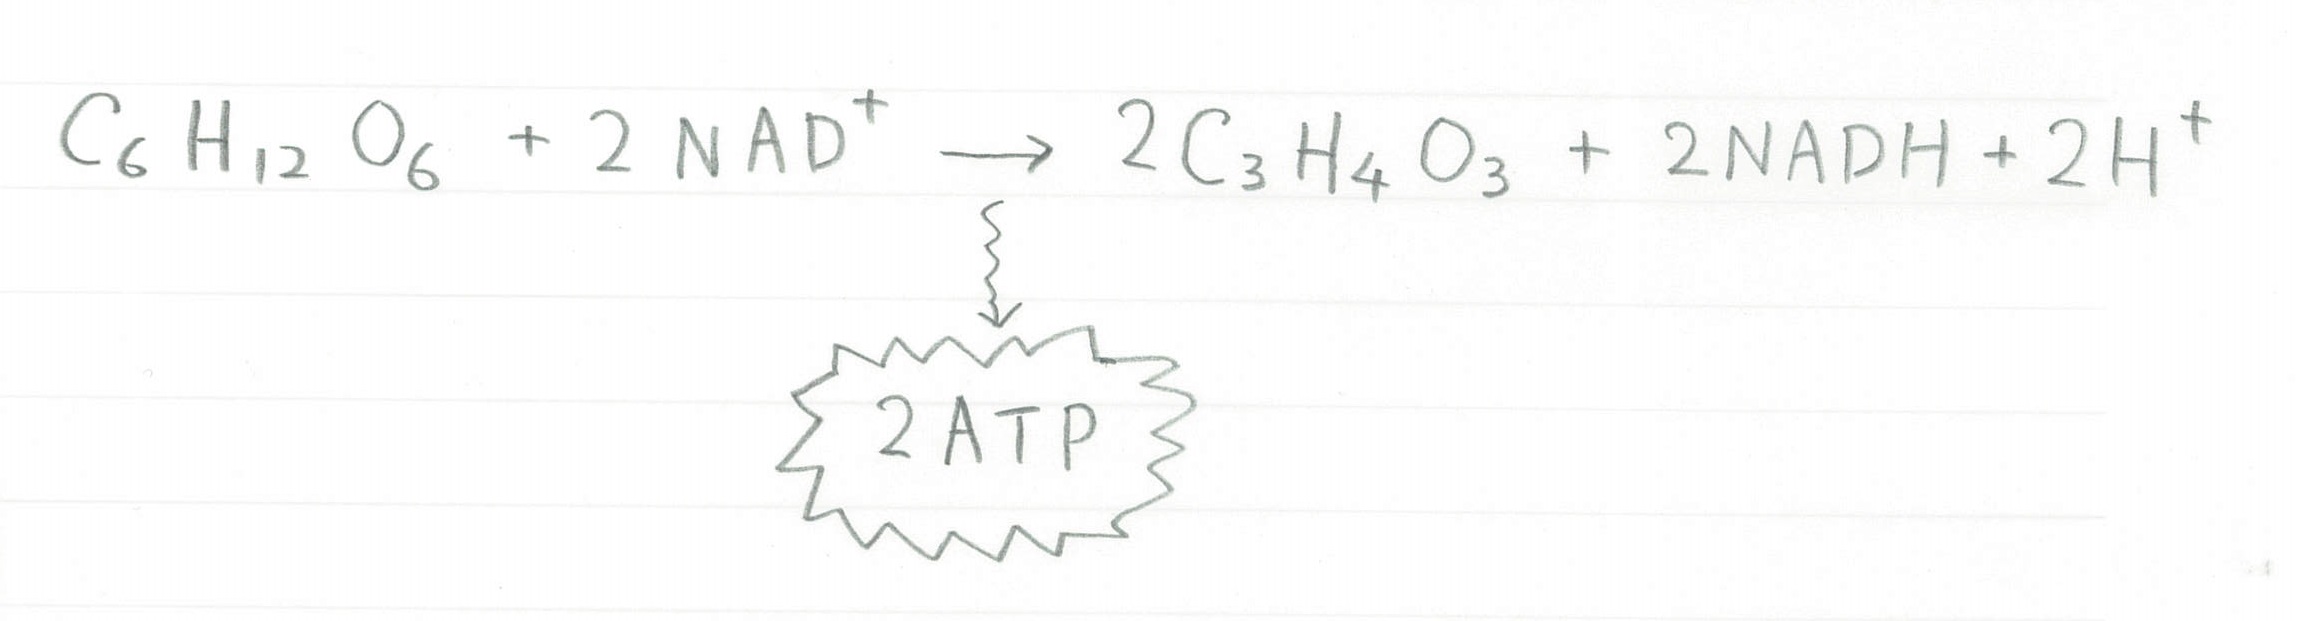 C₆H₁₂O₆ + 2NAD⁺ → 2C₃H₄O₃ + 2NADH + 2H⁺
2ATP